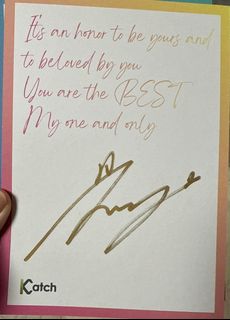 It's an honor to be yours and
to beloved by you
You are the BEST
My one and only
Katch